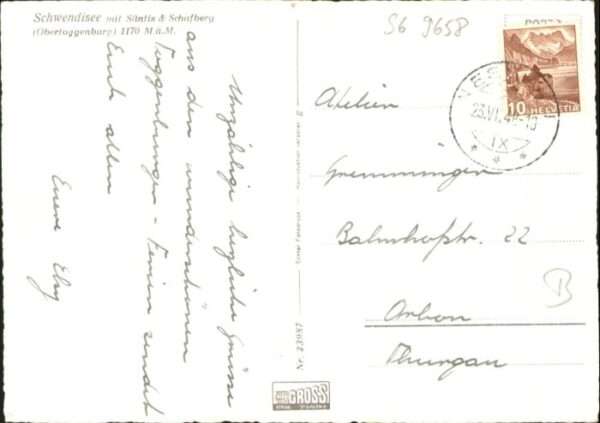 Schwendisee mit Säntis & Schafberg
(Obertoggenburg) 1170 M ü.M.
Unzählige herzliche Grüsse
aus den wunderschönen
Toggenburger-Ferien sendet
Euch allen
Eure Elsy
Nr. 23987
GROSS
S6 9658
10 HELVETIA
23.VI.4
IX
Atelier
Gremminger
Bahnhofstr. 22
Arbon
Thurgau
B